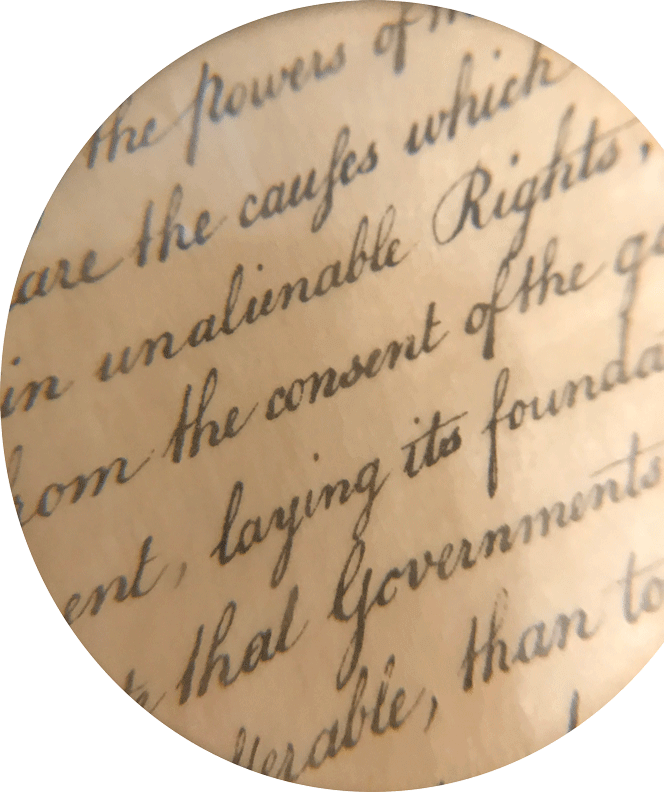 the powers of
are the cauſes which
in unalienable Rights,
the consent of the
ent, laying its founda
that Governments
than to